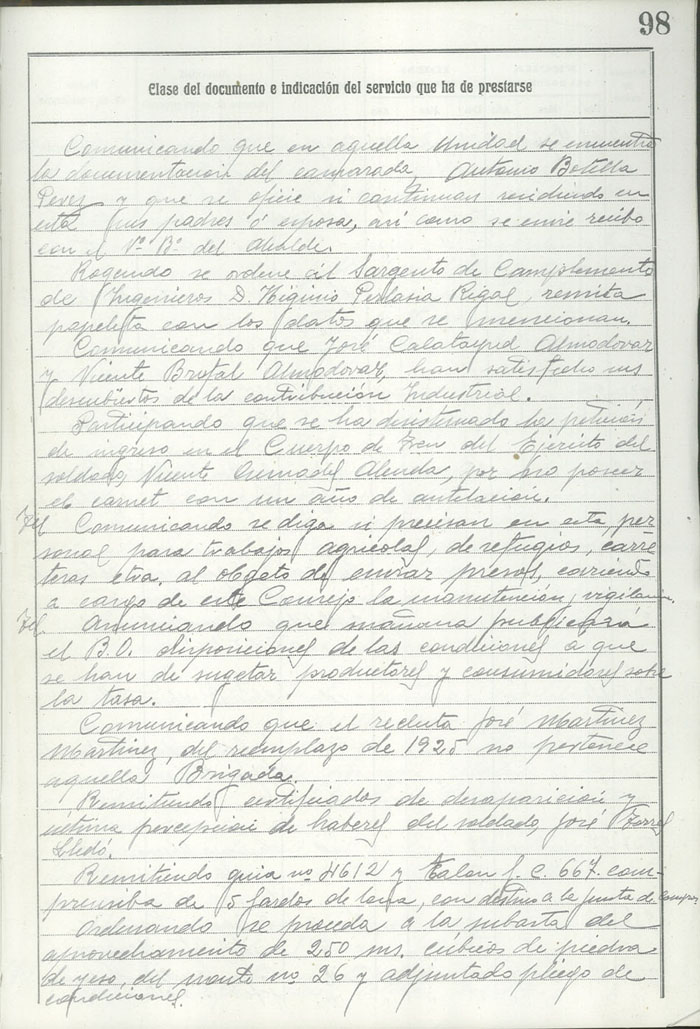 98
Clase del documento e indicación del servicio que ha de prestarse
Comunicando que en aquella Unidad se encuentra
la documentacion del camarada, Antonio Botella
Perez y que se oficie si continuan residiendo en
esta sus padres ó esposa, asi como se envie recibo
con el Vº Bº del Alcalde.
Rogando se ordene al Sargento de Complemento
de Ingenieros D. Higinio Perlasia Rigal, remita
papeleta con los datos que se mencionan.
Comunicando que José Calatayud Almodovar
y Vicente Brotal Almodovar, han satisfecho sus
descubiertos de la contribución Industrial.
Participando que se ha desistemado la petición
de ingreso en el Cuerpo de Tren del Ejército del
soldado Vicente Alenda, por no poseer
el carnet con un año de antelacion.
Tel Comunicando se diga si precisan en esta per
sonal para trabajos agricolas, de refugios, carre
teras etra. al obgeto de enviar presos, corriendo
a cargo de este Consejo la manutención y vigilancia.
Tel. Anunciando que mañana publicará
el B.O. disposiciones de las condiciones a que
se han de sugetar productores y consumidores sobre
la tasa.
Comunicando que el recluta José Martinez
Martinez, del reemplazo de 1925 no pertenece
aquella Brigada.
Remitiendo certificados de desaparicion y
ultima percepcion de haberes del soldado, José Torres
Lledó.
Remitiendo guia nº 4612 y talon f. c. 667. com-
prensiba de 5 fardos de lana, con destino a la junta de Compras
Ordenando se proceda a la subasta del
aprovechamento de 250 ms. cúbicos de piedra
de yeso, del monte nº 26 y adjuntado pliego de
condiciones.